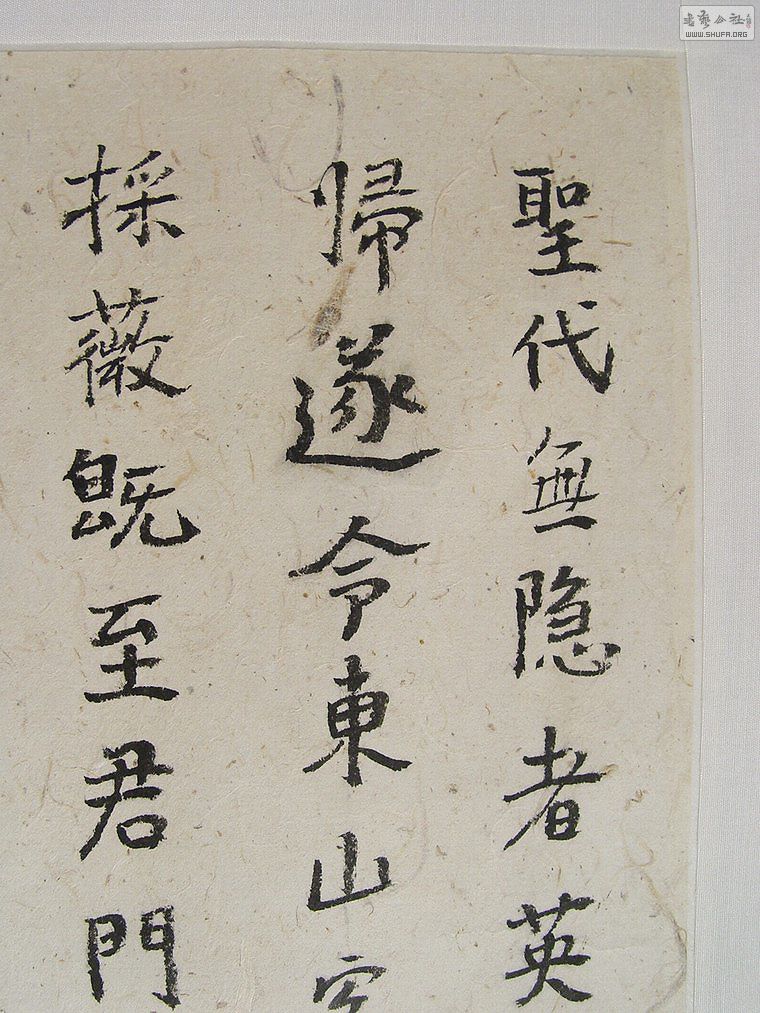 聖代無隐者英
歸遂令東山客
採薇既至君門
書藝公社
WWW.SHUFA.ORG